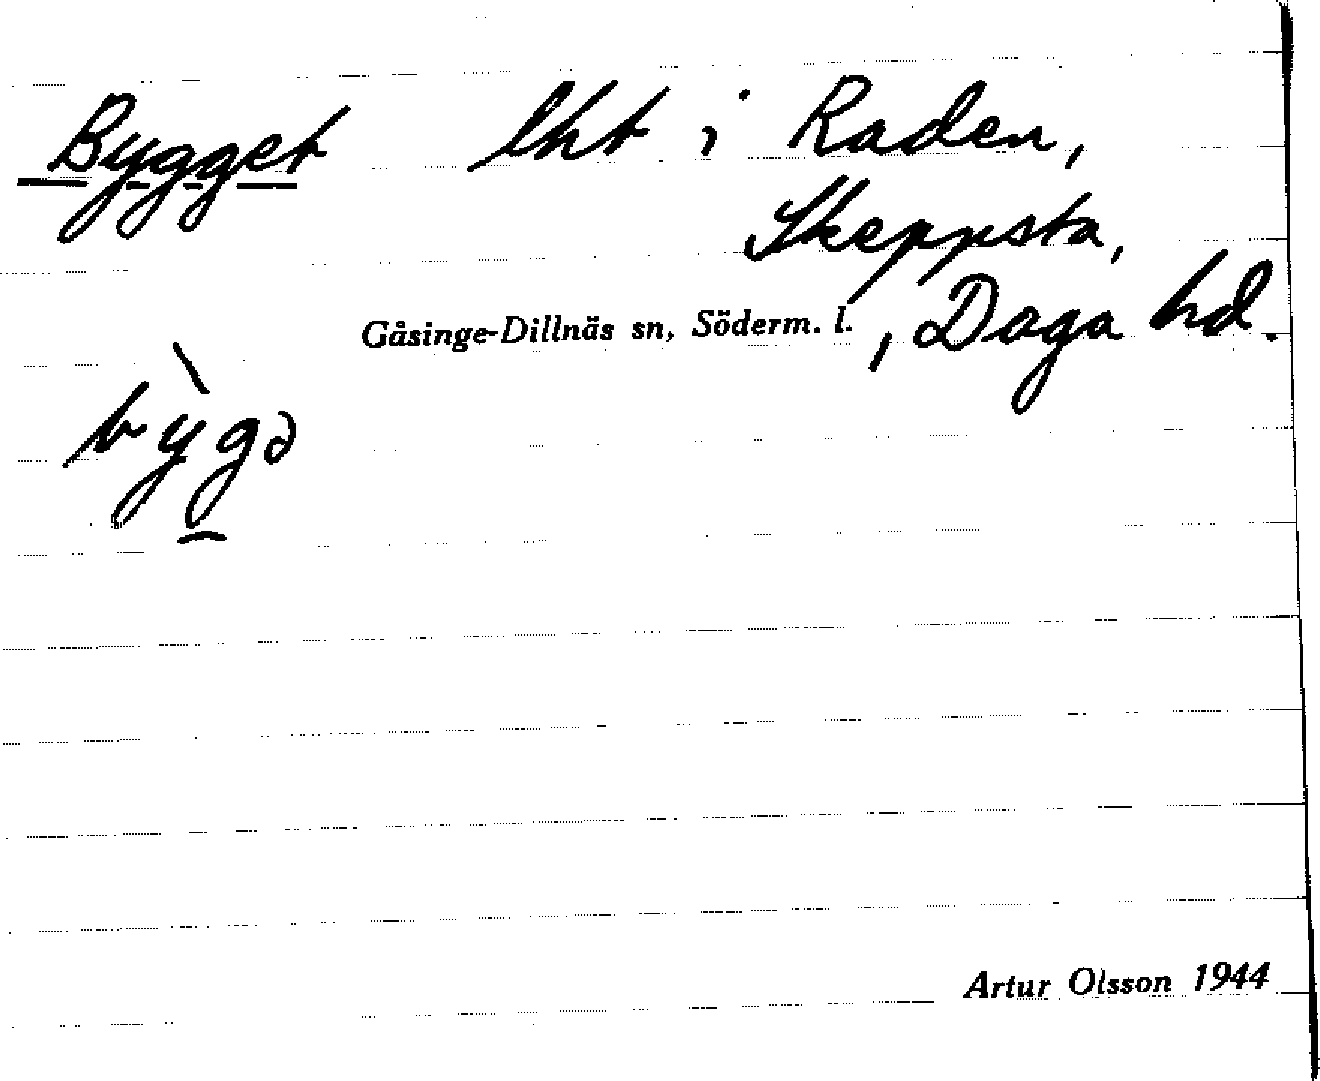 Bygget lht i Raden,
Skeppsta,
Gåsinge-Dillnäs sn, Söderm. l., Daga hd.
bỳg̠ə
Artur Olsson 1944